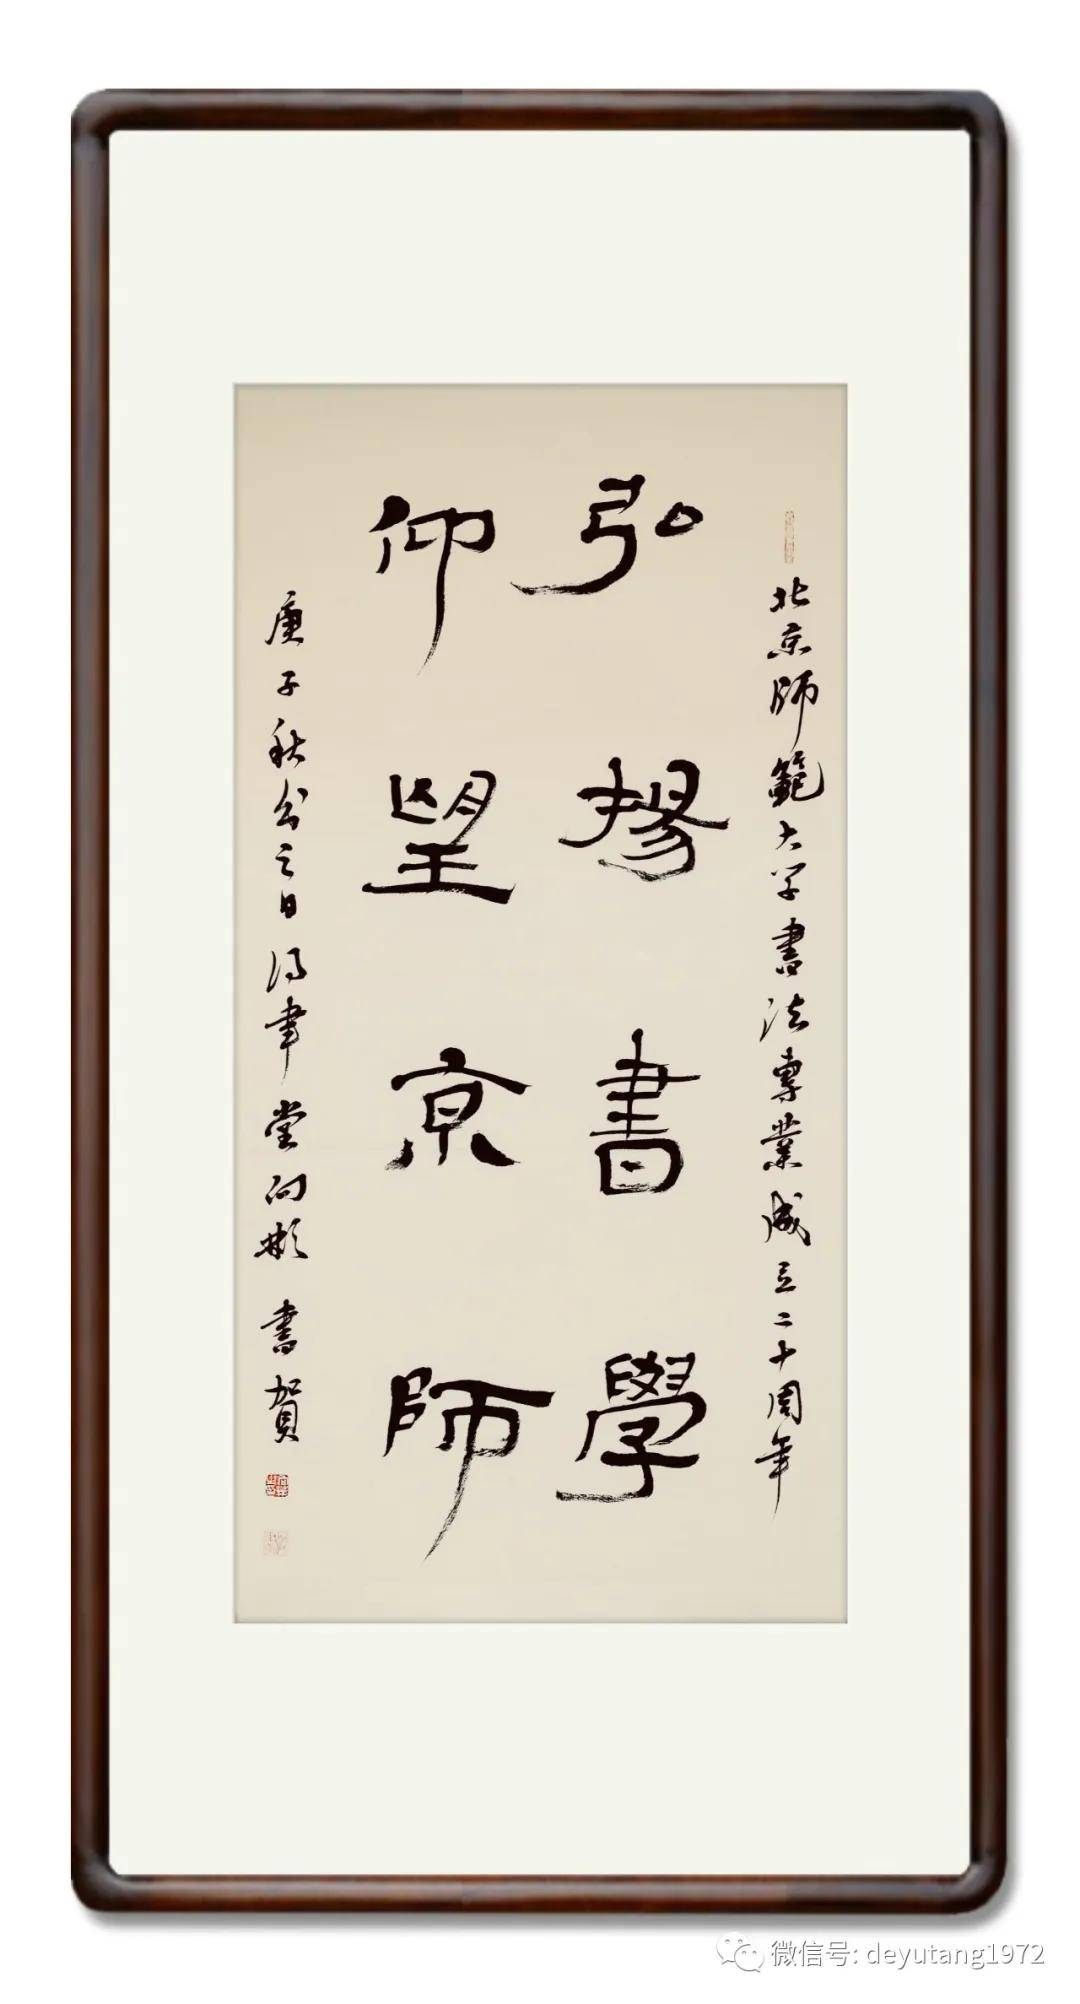 北京師範大学書法專業成立二十周年
弘揚書學
仰望京師
庚子秋分之日得聿堂向彬書賀
微信号: deyutang1972